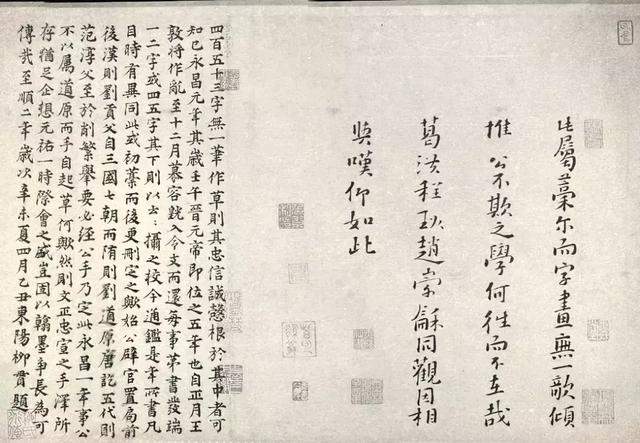 此屬藁尔而字畫無一欹傾
推公不欺之學何往而不在哉
葛洪程珌趙崇龢同觀因相
與嘆仰如此
四百五十三字無一筆作草則其忠信誠愨根於其中者可
知已永昌元年其歲壬午晉元帝即位之五年也自正月王
敦將作亂至十二月慕容皝入令支而還每事第書發端
一二字或四五字其下則以云〻攝之校今通鑑是年所書凡
目時有異同此或初藁而後更刪定之歟始公辟官置局前
後漢則劉貢父自三國七朝而隋則劉道原唐訖五代則
范淳父至於削繁舉要必經公手乃定此永昌一年事公
不以屬道原而手自起草何歟然則文正忠宣之手澤所
存猶足企想元祐一時際會之盛豈固以翰墨爭長為可
傳哉至順二年歲次辛未夏四月乙丑東陽柳貫題